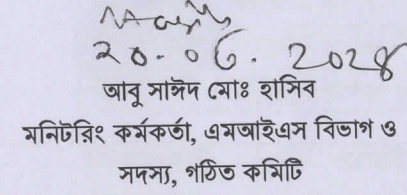 ২০.০৬.২০২৪
আবু সাঈদ মোঃ হাসিব
মনিটরিং কর্মকর্তা, এমআইএস বিভাগ ও
সদস্য, গঠিত কমিটি